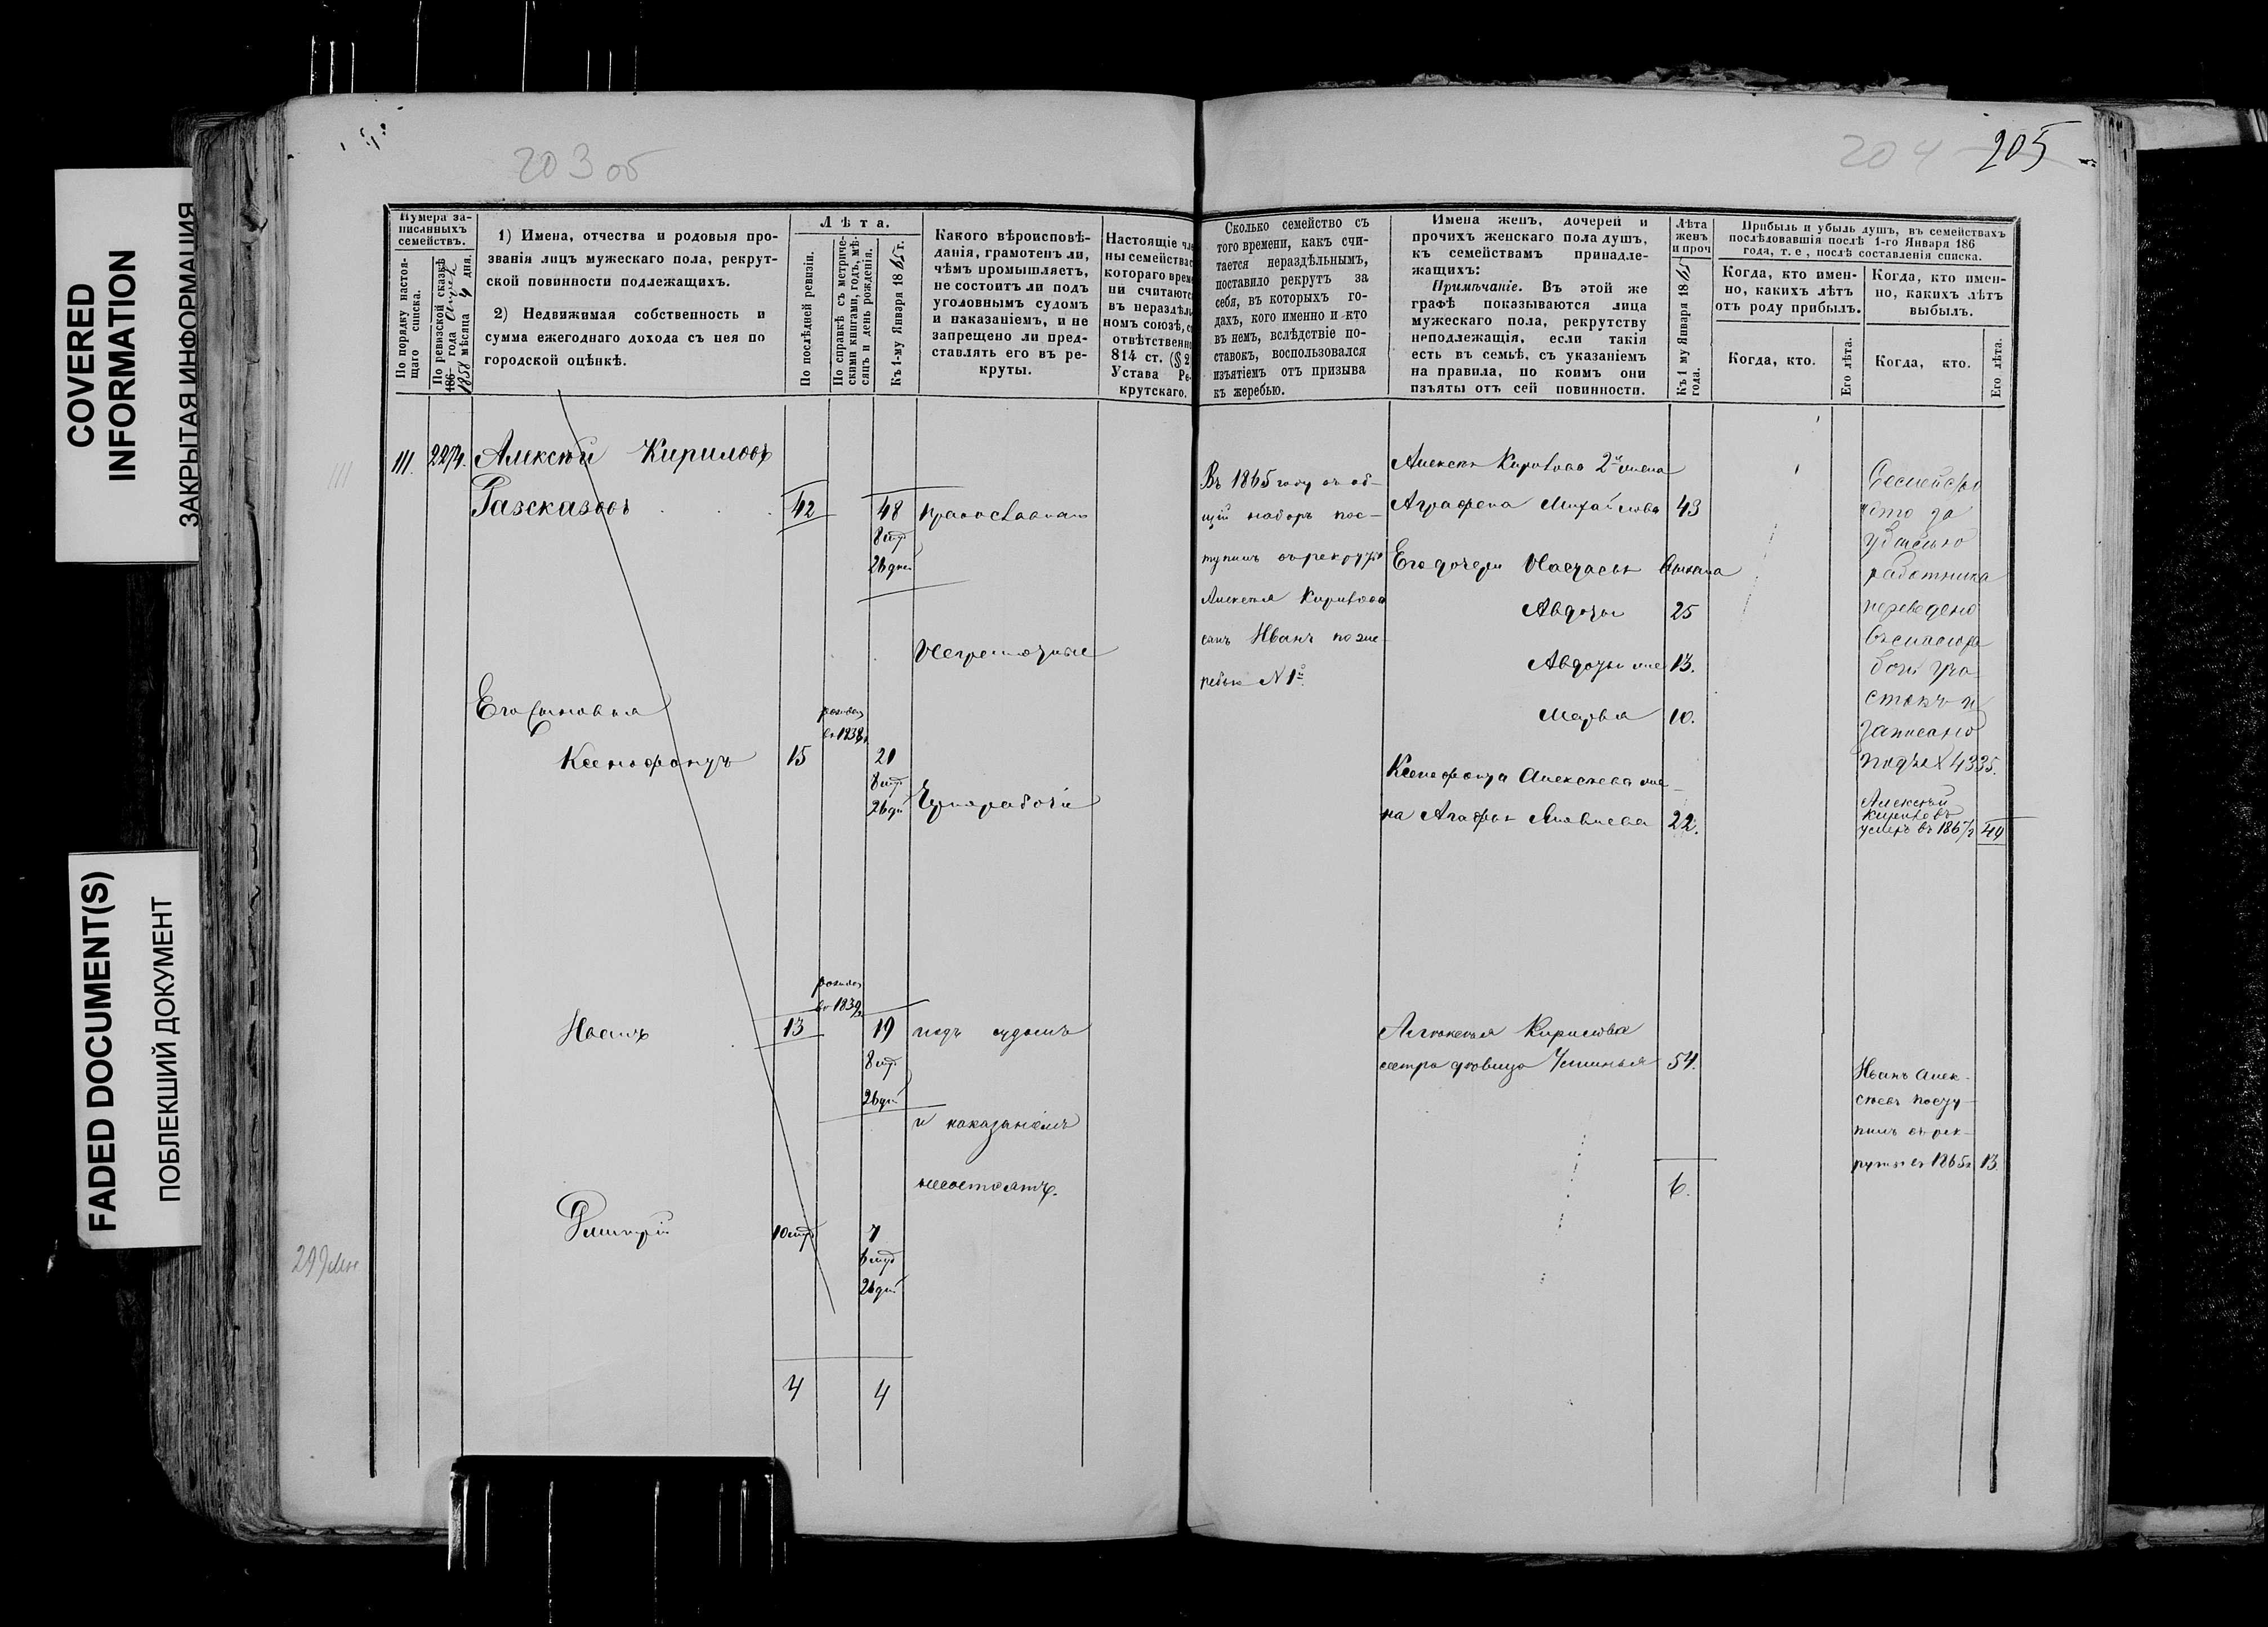 COVERED
INFORMATION
ЗАКРЫТАЯ ИНФОРМАЦИЯ
FADED DOCUMENT(S)
ПОБЛЕКШИЙ ДОКУМЕНТ
203 об
Нумера за-
писанныхъ
семействъ.
По порядку настоя-
щаго списка.
По ревизской сказкѣ
186 года
1858 мѣсяца 4 дня.
1) Имена, отчества и родовыя про-
званія лицъ мужескаго пола, рекрут-
ской повинности подлежащихъ.
2) Недвижимая собственность и
сумма ежегоднаго дохода съ нея по
городской оцѣнкѣ.
Лѣта.
По послѣдней ревизіи.
По справкѣ съ метриче-
скими книгами, годъ, мѣ-
сяцъ и день рожденія.
Къ 1-му Января 1865 г.
Какого вѣроисповѣ-
данія, грамотенъ ли,
чѣмъ промышляетъ,
не состоитъ ли подъ
уголовнымъ судомъ
и наказаніемъ, и не
запрещено ли пред-
ставлять его въ ре-
круты.
Настоящіе чле
ны семейства с
котораго врем
ни считаютс
въ нераздѣль
номъ союзѣ, с
отвѣтственно
814 ст. (§ 2
Устава Ре-
крутскаго.
111. 2274. Алексѣй Кириловъ
Разсказовъ 42 48 православнаго
8 мѣс
26 дней
Неграмотные
Его сыновья
родился
въ 1838 г
Ксенофонтъ 15 21
8 мѣс
26 дн
Чернорабочіе
родился
въ 1839
Иванъ 13 19 подъ судомъ
8 мѣс
26 дн
и наказаніемъ
несостоятъ.
Дмитрій 10 мѣс 7
26 дн
4 4
204 205
Сколько семейство съ
того времени, какъ счи-
тается нераздѣльнымъ,
поставило рекрутъ за
себя, въ которыхъ го-
дахъ, кого именно и кто
въ немъ, вслѣдствіе по-
ставокъ, воспользовался
изъятіемъ отъ призыва
къ жеребью.
Имена женъ, дочерей и
прочихъ женскаго пола душъ,
къ семействамъ принадле-
жащихъ:
Примѣчаніе. Въ этой же
графѣ показываются лица
мужескаго пола, рекрутству
неподлежащія, если такія
есть въ семьѣ, съ указаніемъ
на правила, по коимъ они
изъяты отъ сей повинности.
Лѣта
женъ
и проч
Къ 1 му Января 1865
года.
Прибыль и убыль душъ, въ семействахъ
послѣдовавшія послѣ 1-го Января 186
года, т. е, послѣ составленія списка.
Когда, кто имен-
но, какихъ лѣтъ
отъ роду прибылъ.
Когда, кто имен-
но, какихъ лѣтъ
выбылъ.
Когда, кто.
Его лѣта.
Когда, кто.
Его лѣта.
Въ 1865 году въ об-
щій наборъ пос-
тупилъ въ рекруты
Алексѣя Кирилова
сынъ Иванъ по же-
ребью N 1й
Алексѣя Кирилова 2я жена
Аграфена Михайлова 43
Его дочери Настасья
Авдотья 25
Авдотья же 13.
Марья 10.
Ксенофонта Алексѣева же-
на Агафья 22.
Алексѣя Кирилова
сестра вдовица Устинья 54.
6.
Семейство
это за
убылью
работника
переведено
участокъ и
записано
подъ N 4335.
Алексѣй
Кириловъ
умеръ въ 1867 49
Иванъ Алек-
сѣевъ посту-
пилъ въ рек-
руты въ 1865 г 13.